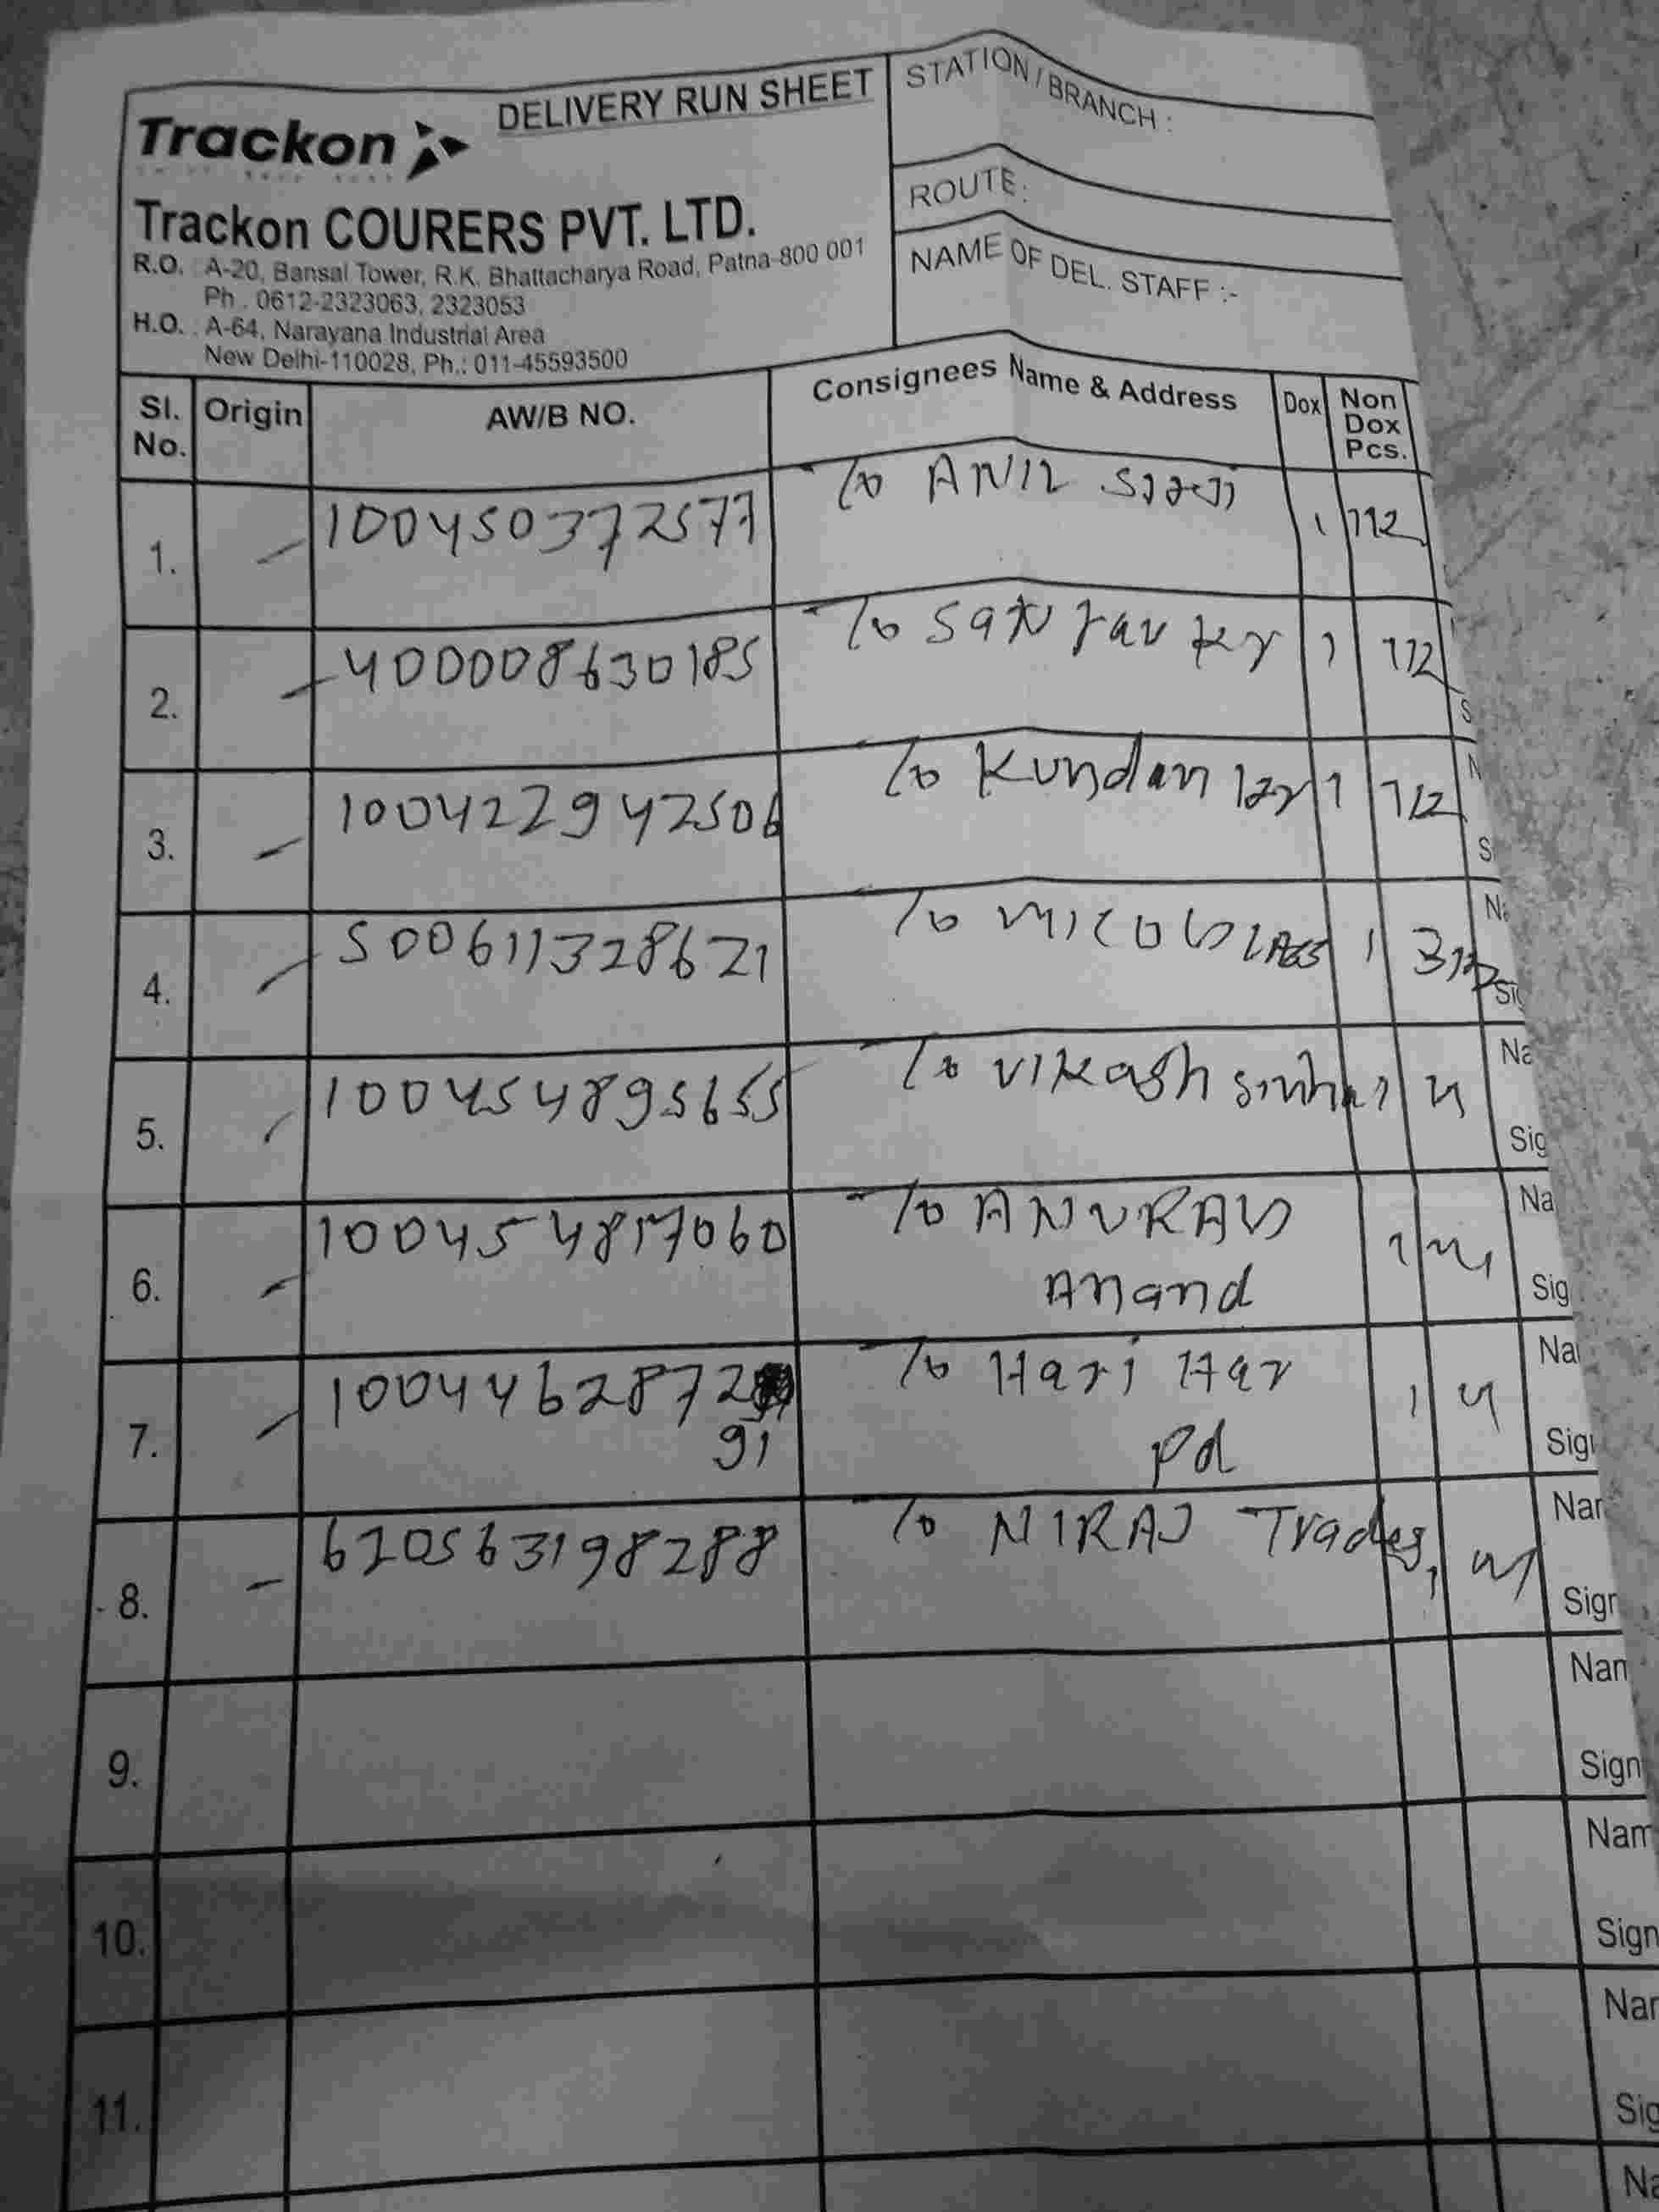 DELIVERY RUN SHEET
Trackon
Trackon COURERS PVT. LTD.
R.O. : A-20, Bansal Tower, R.K. Bhattacharya Road, Patna-800 001
Ph . 0612-2323063, 2323053
H.O. : A-64, Narayana Industrial Area
New Delhi-110028, Ph.: 011-45593500
STATION / BRANCH :
ROUTE :
NAME OF DEL. STAFF :-
Sl. No. Origin AW/B NO. Consignees Name & Address Dox Non Dox Pcs.
1. 100450372577 To ANIL 1
2. 400008630185 To 1
3. 100422942506 To Kundan 1
4. 500611328621 To 1
Sig
5. 100454895655 To Vikash Sinha 1
Na
Sig
6. 100454817060 To ANURAG 1
Anand
Na
Sig
7. 1004462872 To Hari Har 1
91 Pd
Na
Sign
8. 620563198288 To NIRAJ Trades 1
Nar
Sign
9.
Nam
Sign
10.
Nam
Sign
11.
Nar
Sig
Na